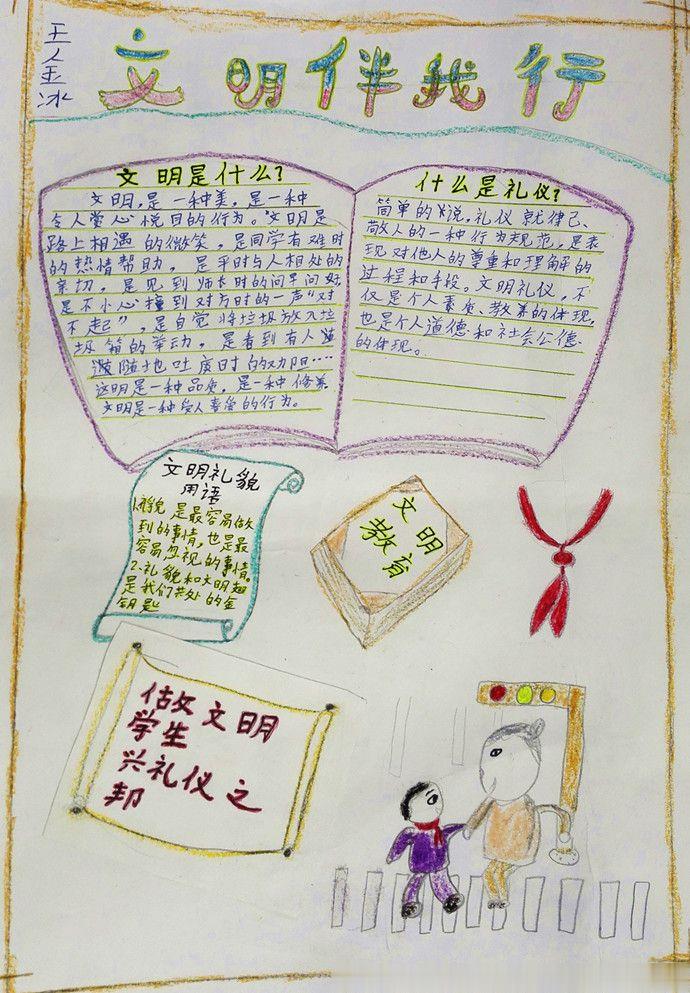 王金冰
文明伴我行
文明是什么？
文明，是一种美，是一种
令人赏心悦目的行为。文明是
路上相遇的微笑，是同学有难时
的热情帮助，是平时与人相处的
亲切，是见到师长时的问早问好，
是不小心撞到对方时的一声“对
不起”，是自觉将垃圾放入垃
圾箱的举动，是看到有人
随地吐痰时的劝阻……
文明是一种品质，是一种修养
文明是一种受人喜爱的行为。
什么是礼仪？
简单的说，礼仪就律己、
敬人的一种行为规范，是表
现对他人的尊重和理解的
过程和手段。文明礼仪，不
仅是个人素质、教养的体现，
也是个人道德和社会公德
的体现。
文明礼貌
用语
1.礼貌是最容易做
到的事情，也是最
容易忽视的事情。
2.礼貌和文明
是我们共处的金
钥匙
文明
教育
做文明
学生
兴礼仪之
邦